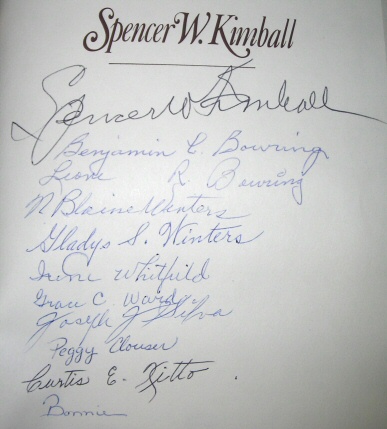 Spencer W. Kimball
Spencer W Kimball
Benjamin L. Bowring
Leone R. Bowring
N Blaine Winters
Gladys S. Winters
Irene Whitfild
Grace C. Ward
Joseph J Silva
Peggy Clouser
Curtis E. Kitto .
Bonnie